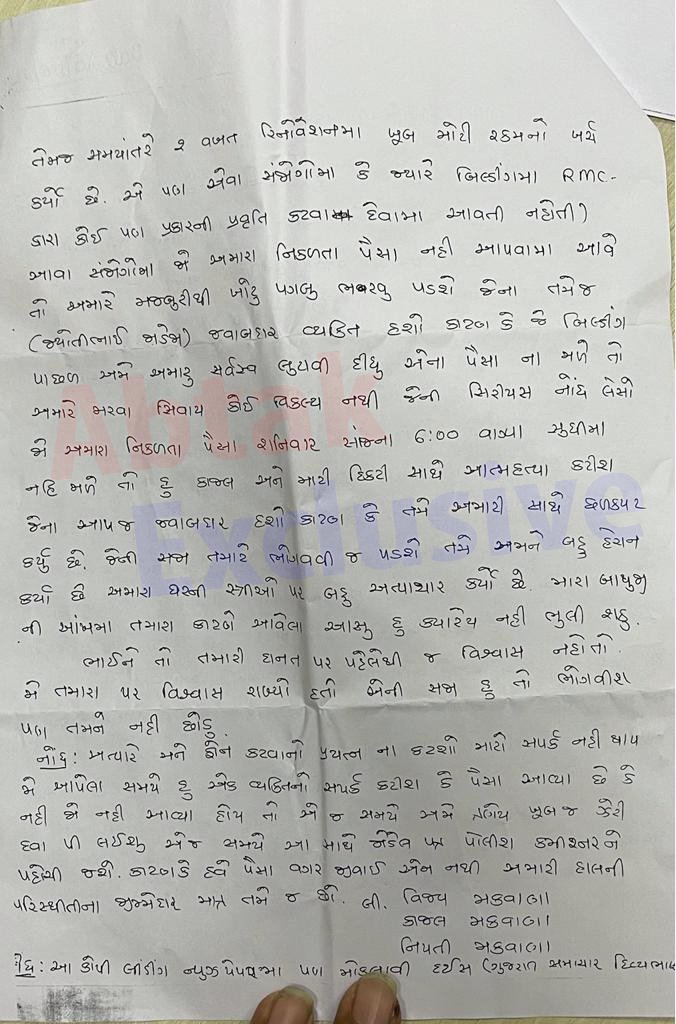 તેમજ સમયાંતરે ૨ વખત રિનોવેશનમા ખૂબ મોટી રકમનો ખર્ચ
કર્યો છે. એ પણ એવા સંજોગોમા કે જ્યારે બિલ્ડીંગમા RMC-
દ્વારા કોઈ પણ પ્રકારની પ્રવૃતિ કરવા દેવામા આવતી નહોતી)
આવા સંજોગોમા જો અમારા નિકળતા પૈસા નહી આપવામા આવે
તો અમારે મજબુરીથી ખોટુ પગલુ ભરવુ પડશે જેના તમેજ
(જ્યોતીભાઈ જાડેજા) જવાબદાર વ્યકિત હશો કારણ કે જે બિલ્ડીંગ
પાછળ અમે અમારુ સર્વસ્વ લુટાવી દીધુ એના પૈસા ના મળે તો
અમારે મરવા સિવાય કોઈ વિકલ્પ નથી જેની સિરીયસ નોંધ લેસો
જો અમારા નિકળતા પૈસા શનિવાર સાંજના 6:00 વાગ્યા સુધીમા
નહિ મળે તો હુ કાજલ અને મારી દિકરી સાથે આત્મહત્યા કરીશ
જેના આપજ જવાબદાર હશો કારણ કે તમે અમારી સાથે છળકપટ
કર્યુ છે. જેની સજા તમારે ભોગવવી જ પડશે તમે અમને બહુ હેરાન
કર્યા છે અમારા ઘરની સ્ત્રીઓ પર બહુ અત્યાચાર કર્યો છે. મારા બાપુજી
ની આંખમા તમારા કારણે આવેલા આસુ હુ ક્યારેય નહી ભુલી શકુ.
ભાઈને તો તમારી દાનત પર પહેલેથી જ વિશ્વાસ નહોતો.
મે તમારા પર વિશ્વાસ રાખ્યો હતો એની સજા હુ તો ભોગવીશ
પણ તમને નહી છોડુ.
નોંધ: અત્યારે મને ફોન કરવાનો પ્રયત્ન ના કરશો મારો સંપર્ક નહી થાય
મે આપેલા સમયે હુ એક વ્યકિતનો સંપર્ક કરીશ કે પૈસા આવ્યા છે કે
નહી જો નહી આવ્યા હોય તો એ જ સમયે અમે ત્રણેય ખૂબ જ ઝેરી
દવા પી લઈશુ એજ સમયે આ સાથે જોડેલ પત્ર પોલીશ કમીશ્નર ને
પહોચી જશે. કારણ કે હવે પૈસા વગર જીવાઈ એમ નથી અમારી હાલની
પરિસ્થીતીના જીમ્મેદાર માત્ર તમે જ છો. લી. વિજય મકવાણા
કાજલ મકવાણા
નિયતી મકવાણા
નોંધ: આ કોપી લીડીંગ ન્યુઝ પેપરમા પણ મોકલાવી દઈસ (ગુજરાત સમાચાર
Abtak
Exclusive